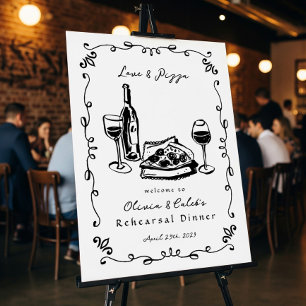 Love & Pizza
welcome to
Olivia & Caleb's
Rehearsal Dinner
April 29th, 2023